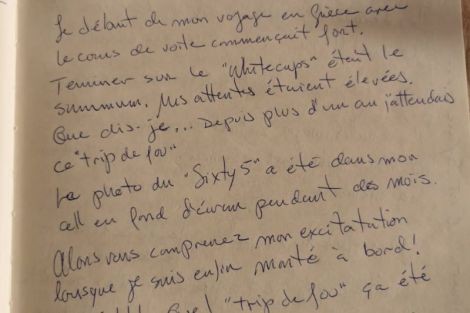 Le début de mon voyage en Grèce avec
le cours de voile commençait fort.
Terminer sur le "Whitecaps" était le
summum. Mes attentes étaient élevées.
Que dis-je... Depuis plus d'un an j'attendais
ce "trip de fou"
La photo du "Sixty5" a été dans mon
cell en fond d'écran pendant des mois.
Alors vous comprenez mon excitatution
lorsque je suis enfin monté à bord!
"trip de fou" ça a été